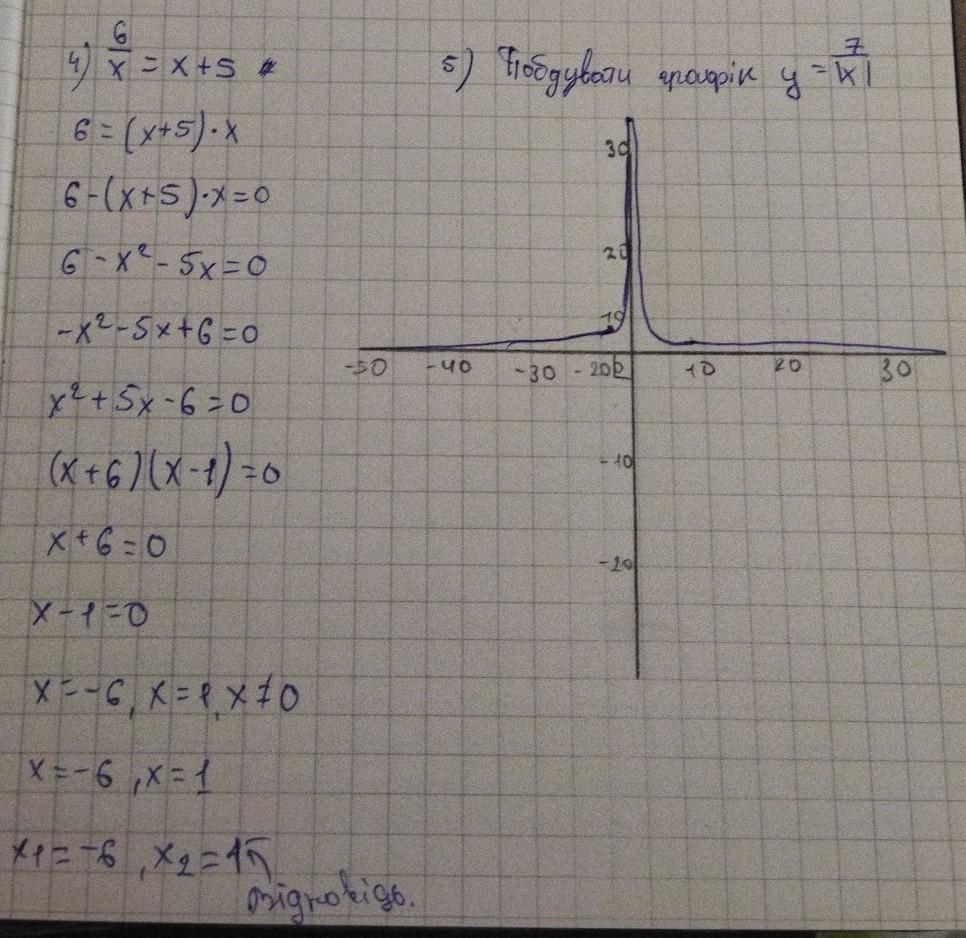 4) 6/x = x+5
6 = (x+5)·x
6-(x+5)·x=0
6-x²-5x=0
-x²-5x+6=0
x²+5x-6=0
(x+6)(x-1)=0
x+6=0
x-1=0
x=-6, x=1, x≠0
x=-6, x=1
x1=-6, x2=1
відповідь.
5) Побдувати графік y = 7/|x|
30
20
10
-50 -40 -30 -20 10 20 30
-10
-20